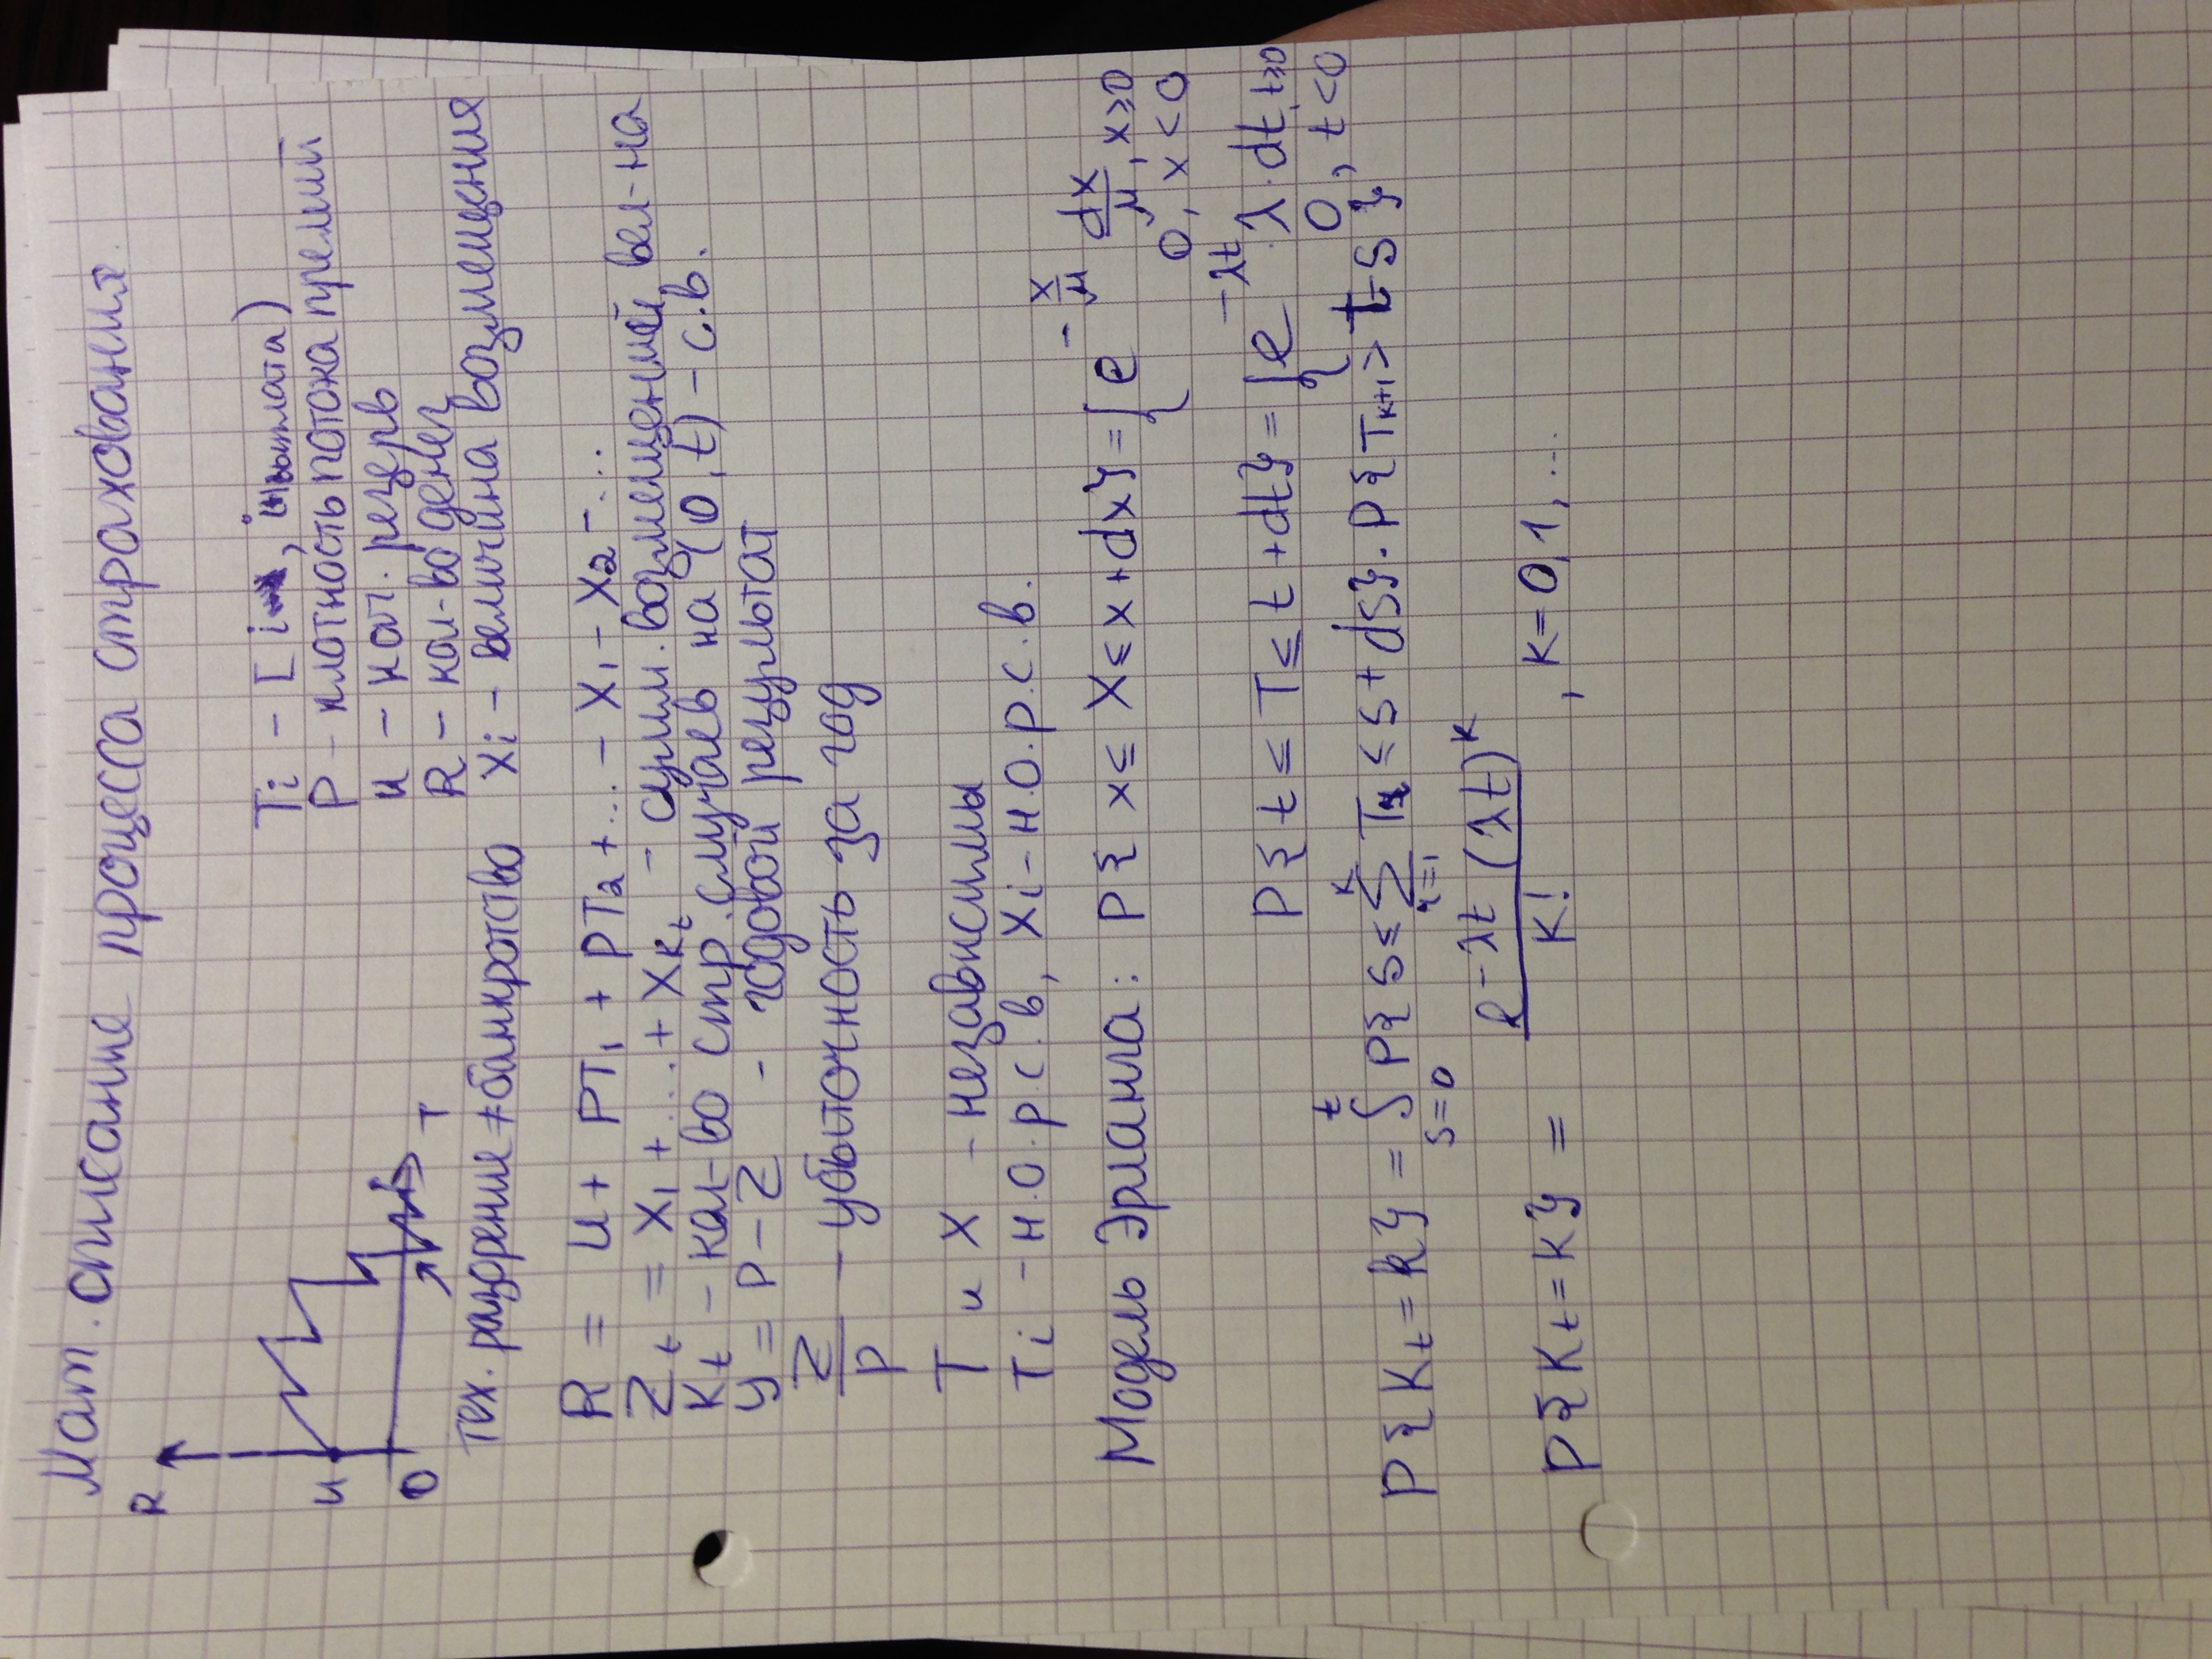 Мат. описание процесса страхования.
R
u
0
T
Ti - [i, выплата)
P - плотность потока премий
u - нач. резерв
R - кол-во денег
Xi - величина возмещения
Тех. разорение ≠ банкротство
R = u + PT₁ + PT₂ + ... - X₁ - X₂ - ...
Zₜ = X₁ + ... + X_Kₜ - сумм. возмещений, вел-на
Kₜ - кол-во стр. случаев на (0, t) - с.в.
y = P - Z - годовой результат
Z/P - убыточность за год
T и X - независимы
Ti - н.о.р.с.в, Xi - н.о.р.с.в.
Модель Эрланга: P{x ≤ X ≤ x + dx} = { e^(-x/μ) dx/μ, x ≥ 0
0, x < 0
P{t ≤ T ≤ t + dt} = { e^(-λt) · λ · dt, t ≥ 0
0, t < 0
P{Kₜ = k} = ∫_(s=0)^t P{s ≤ Σ_(i=1)^k Ti ≤ s + ds} · P{T_(k+1) > t - s}
P{Kₜ = k} = e^(-λt) (λt)^k / k! , k = 0, 1, ...